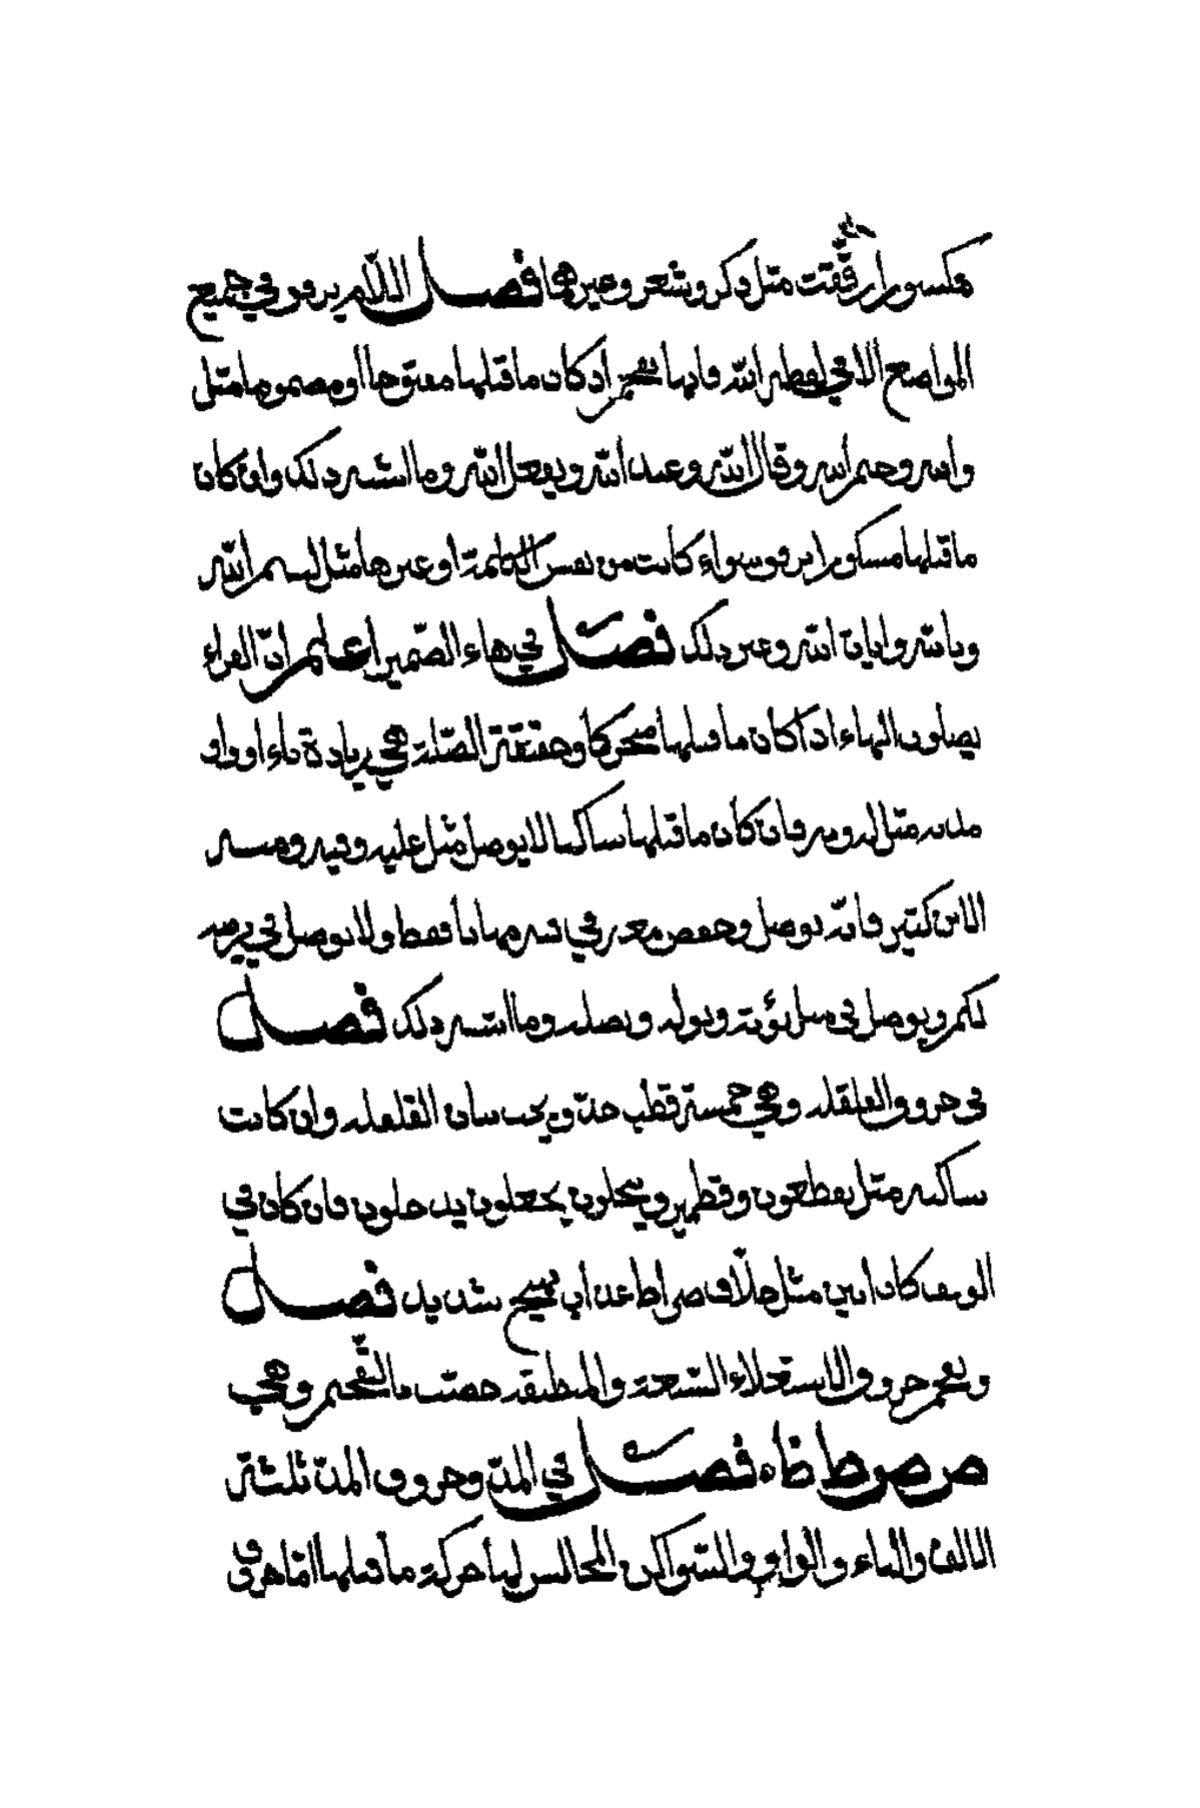 مكسورا رققت مثل ذكر وشعر وغيرهما فصل اللام يرقق في جميع
المواضع الا في لفظ الله فانها تفخم اذ كان ما قبلها مفتوحا او مضموما مثل
والله وختم الله وقال الله وعبد الله ويفعل الله وما اشبه ذلك وان كان
ما قبلها مكسورا يرقق سواء كانت من نفس الكلمة او غيرها مثل بسم الله
وبالله وايات الله وغير ذلك فصل في هاء الضمير اعلم ان القراء
يصلون الهاء اذا كان ما قبلها متحركا وحقيقة الصلة هي زيادة ياء او واو
مدية مثل له وبه فان كان ما قبلها ساكنا لا يوصل مثل عليه وفيه ومنه
الا ابن كثير فانه يوصل وحفص معه في فيه مهانا فقط ولا يوصل في يرضه
لكم ويوصل في مثل نؤته ونوله ونصله وما اشبه ذلك فصل
في حروف القلقلة وهي خمسة قطب جد ويجب بيان القلقلة وان كانت
ساكنة مثل يقطعون وقطمير ويبخلون يجعلون يدخلون فان كان في
الوقف كان ابين مثل خلاق صراط عذاب بهيج شديد فصل
وتفخم حروف الاستعلاء السبعة والمطبقة خصت بالتفخيم وهي
ص ض ط ظ فصل في المد وحروف المد ثلثة
الالف والياء والواو والسواكن المجالس لها حركة ما قبلها اما هرفى